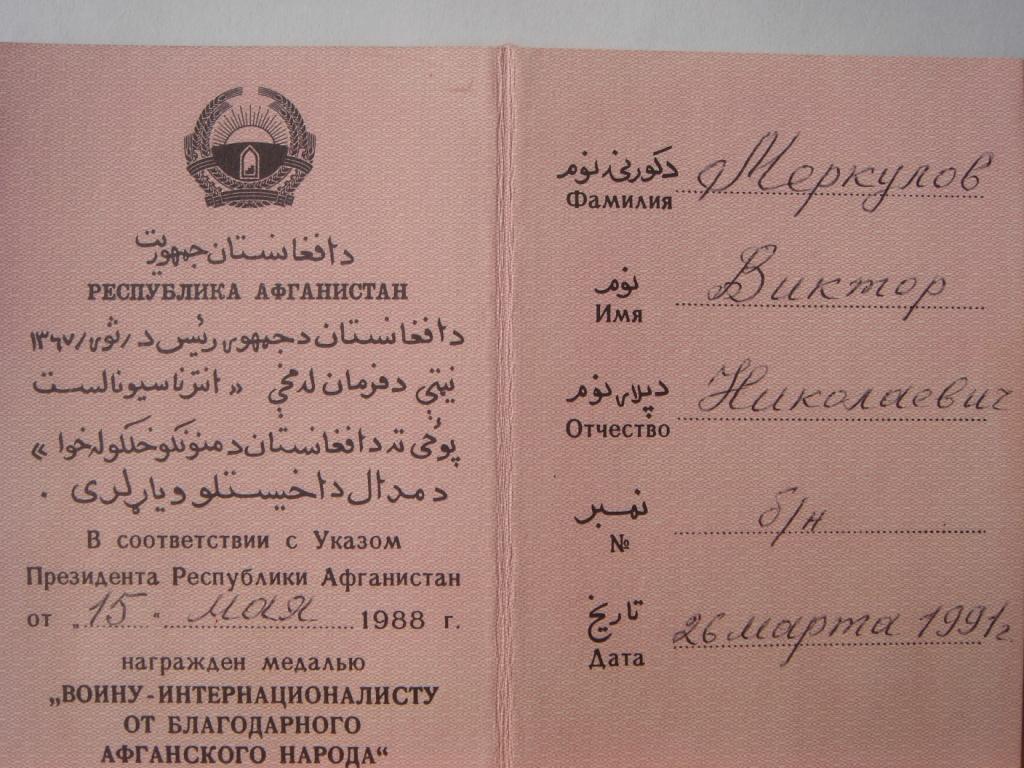 دافغانستان جمهوریت
РЕСПУБЛИКА АФГАНИСТАН
دافغانستان دجمهوری رئیس د /ثور/ ۱۳۶۷
نیټې دفرمان له مخې «انترناسیونالست
پوځي ته دافغانستان د منونکو خلکو له خوا»
د مدال داخیستلو ویاړ لری .
В соответствии с Указом
Президента Республики Афганистан
от „15" мая 1988 г.
награжден медалью
„ВОИНУ-ИНТЕРНАЦИОНАЛИСТУ
ОТ БЛАГОДАРНОГО
АФГАНСКОГО НАРОДА“
دکورنۍ نوم
Фамилия Меркулов
نوم
Имя Виктор
دپلار نوم
Отчество Николаевич
نمبر
№ б/н
تاریخ
Дата 26 марта 1991г